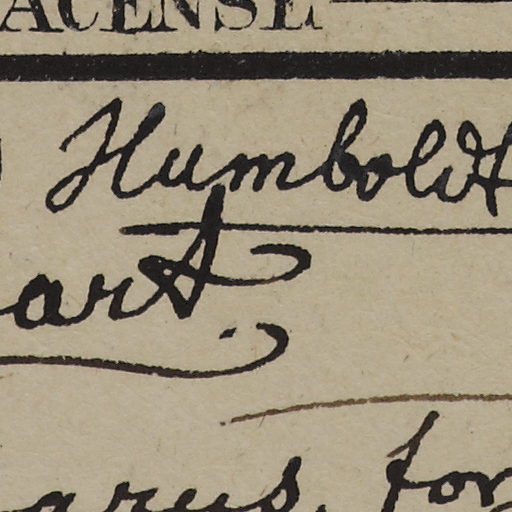 ACENSE
Humboldt
art.
arus, for